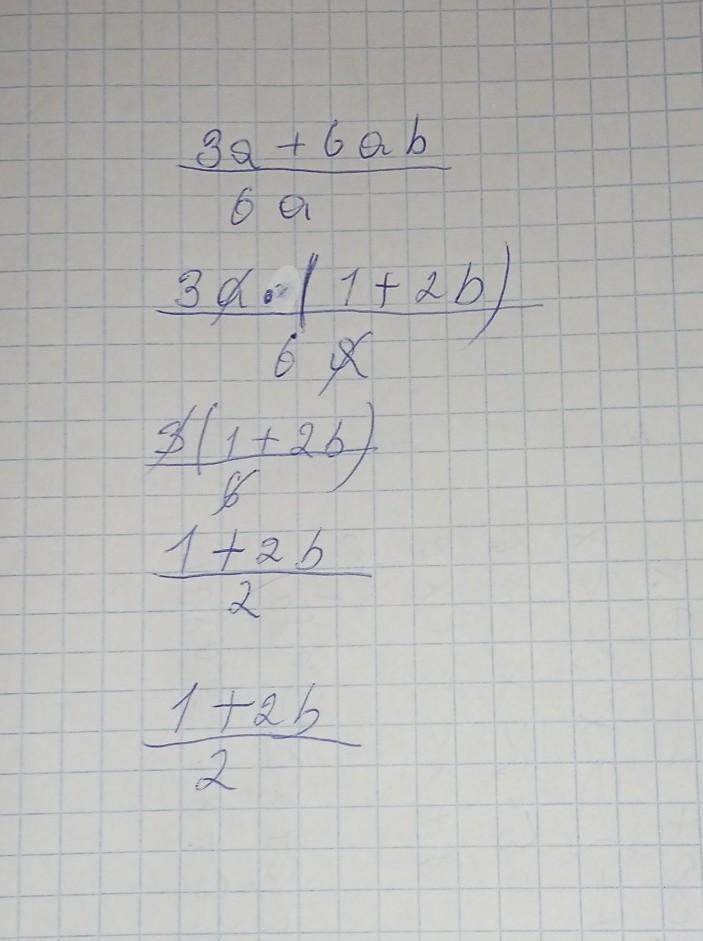 3a + 6ab
6a
3a · (1 + 2b)
6a
3(1 + 2b)
6
1 + 2b
2
1 + 2b
2